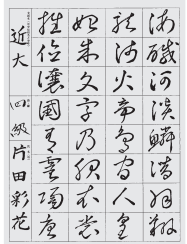 海鹹河淡鱗潛羽翔
龍師火帝鳥官人皇
始制文字乃服衣裳
推位讓國有虞陶唐
近大 四級 片田彩花